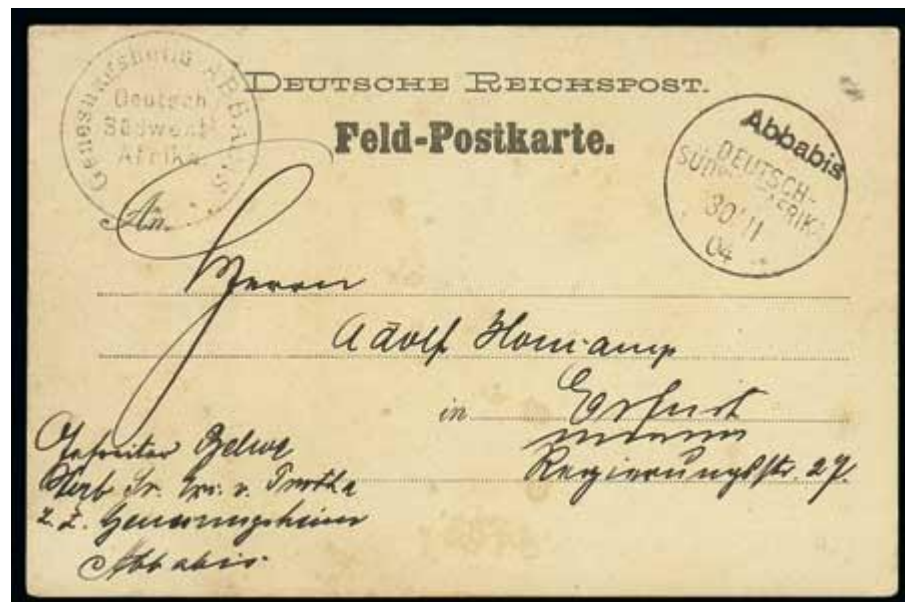 Genesungsheim ABBABIS
Deutsch
Südwest
Afrika
DEUTSCHE REICHSPOST.
Feld-Postkarte.
Abbabis
DEUTSCH-
SÜDWESTAFRIKA
30/11
04
An
Herrn
Adolf
in Erfurt
Regierungsstr. 27.
Gefreiter
Stab Sr. Exc. v. Trotha
z. Z. Genesungsheim
Abbabis